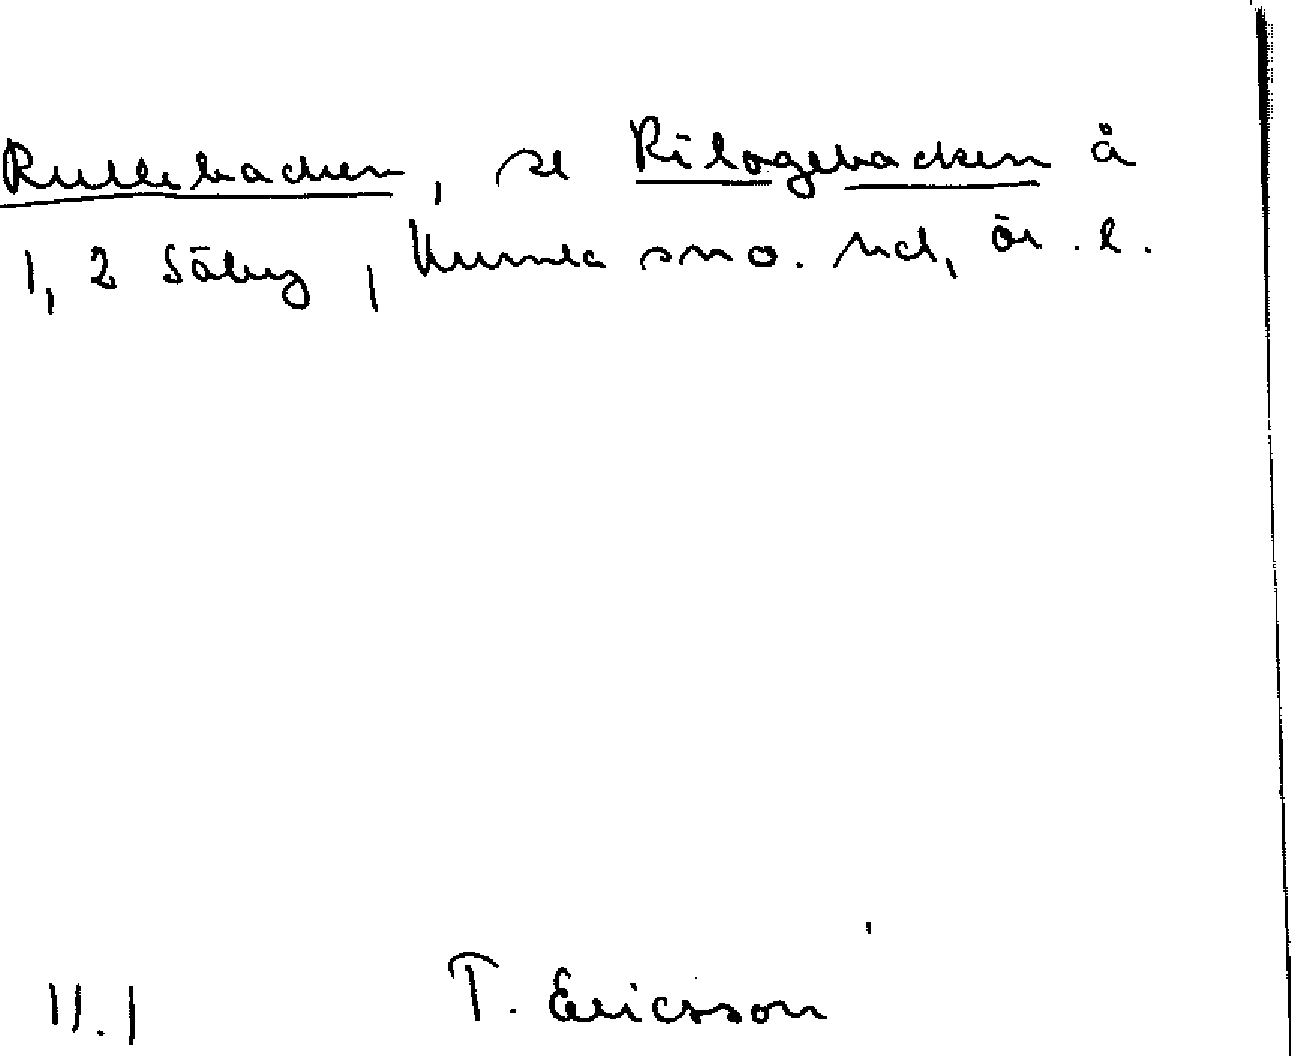 Rullebacken, se Rilogebacken å
1, 2 Säby, Kumla sn o. hd, ör. l.
11.1 T. Ericsson